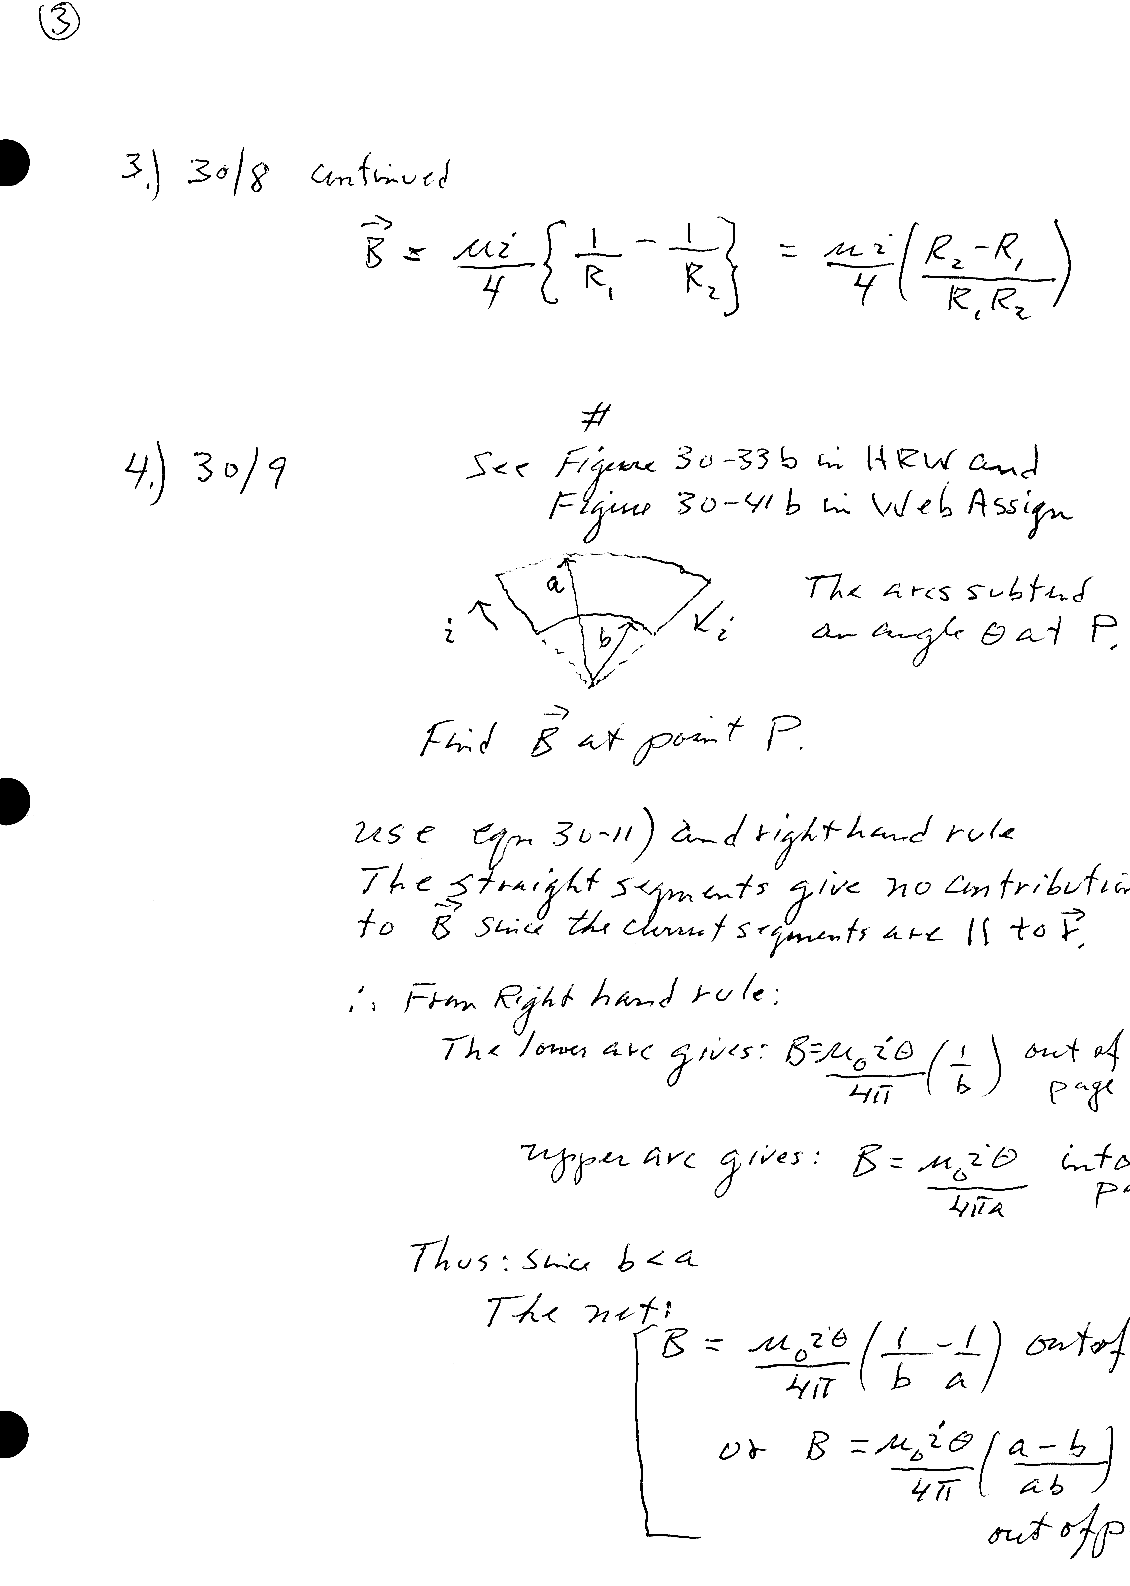 3
3.) 30/8 continued
B⃗ = μi/4 { 1/R₁ - 1/R₂ } = μi/4 ( (R₂-R₁)/(R₁R₂) )
#
4.) 30/9 See Figure 30-33b in HRW and
Figure 30-41b in WebAssign
a
b
i
i
The arcs subtend
an angle θ at P.
Find B⃗ at point P.
use eqn 30-11) and right hand rule
The straight segments give no contributio
to B⃗ since the current segments are || to r⃗.
∴ From Right hand rule:
The lower arc gives: B=μ₀iθ/4π (1/b) out of
page
upper arc gives: B = μ₀iθ/4πa into
pa
Thus: since b<a
The net:
B = μ₀iθ/4π (1/b - 1/a) out of
or B = μ₀iθ/4π ( (a-b)/ab )
out of p